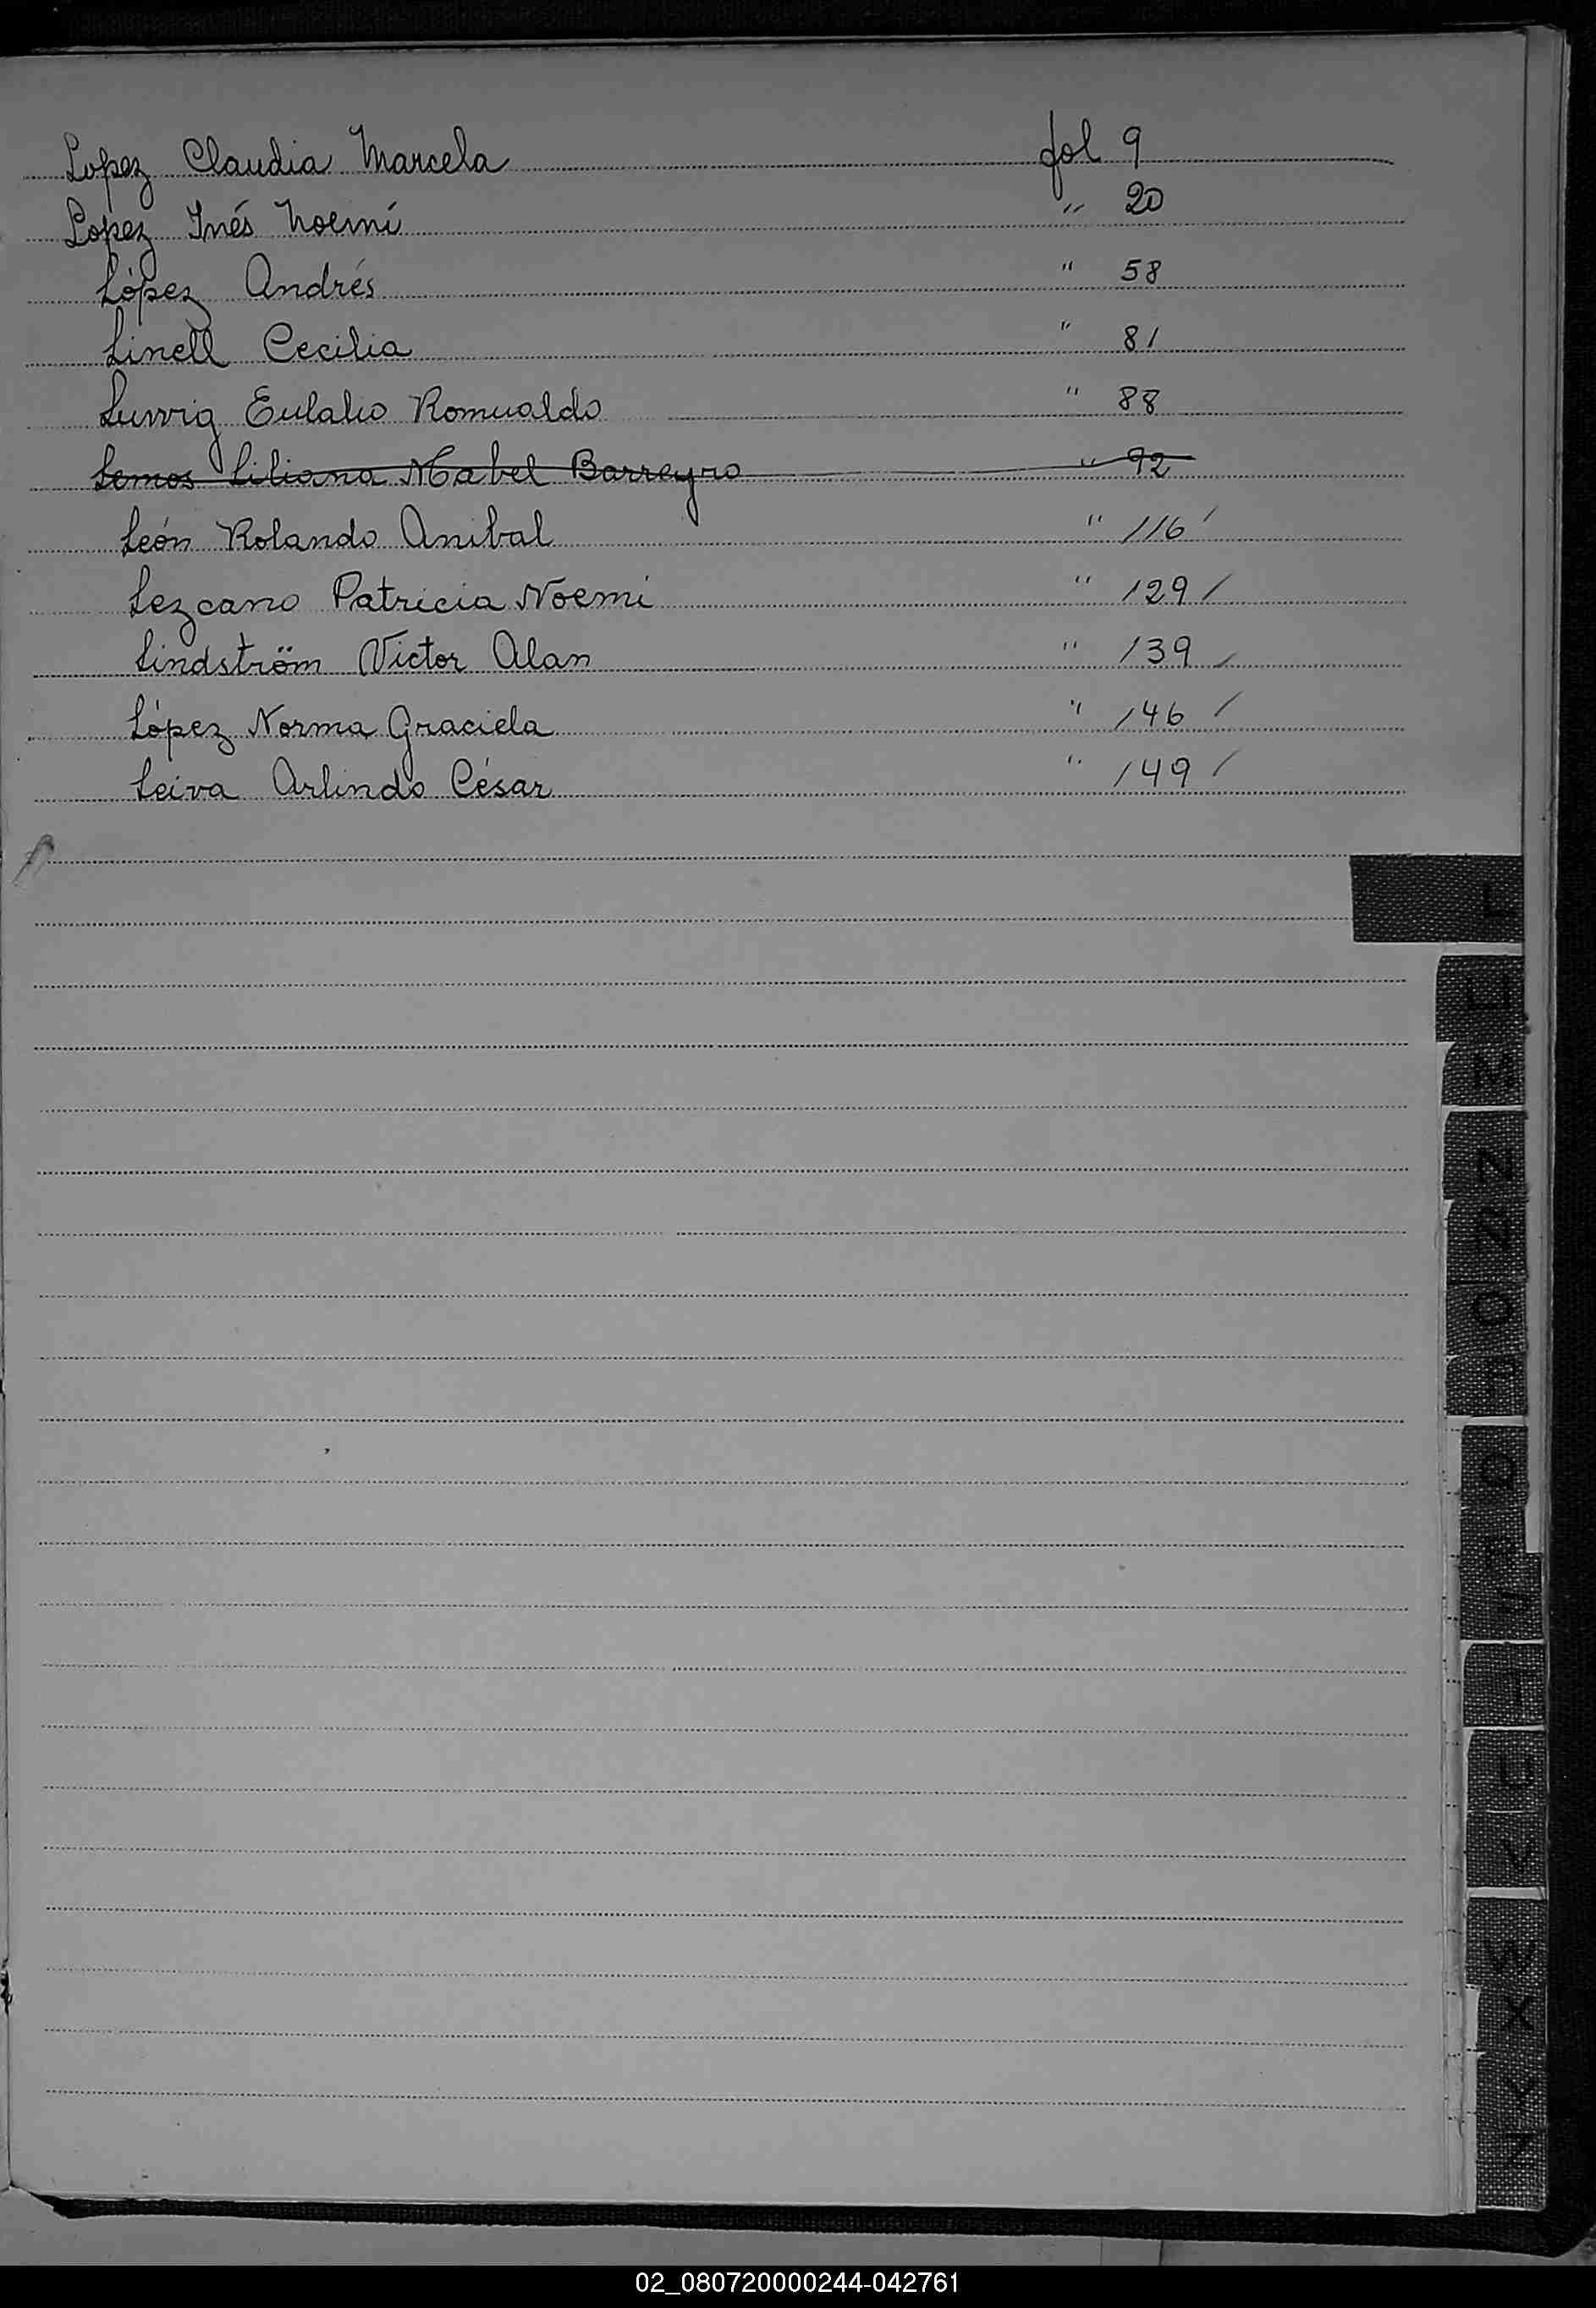 Lopez Claudia Marcela fol 9
Lopez Inés Noemí " 20
López Andrés " 58
Linell Cecilia " 81
Luwig Eulalio Romualdo " 88
Lemos Liliana Mabel Barreyro " 92
León Rolando Anibal " 116
Lezcano Patricia Noemi " 129
Lindström Victor Alan " 139
López Norma Graciela " 146
Leiva Arlindo César " 149
L
LL
M
N
Ñ
O
P
Q
R
S
T
U
V
W
X
Y
Z
02_080720000244-042761